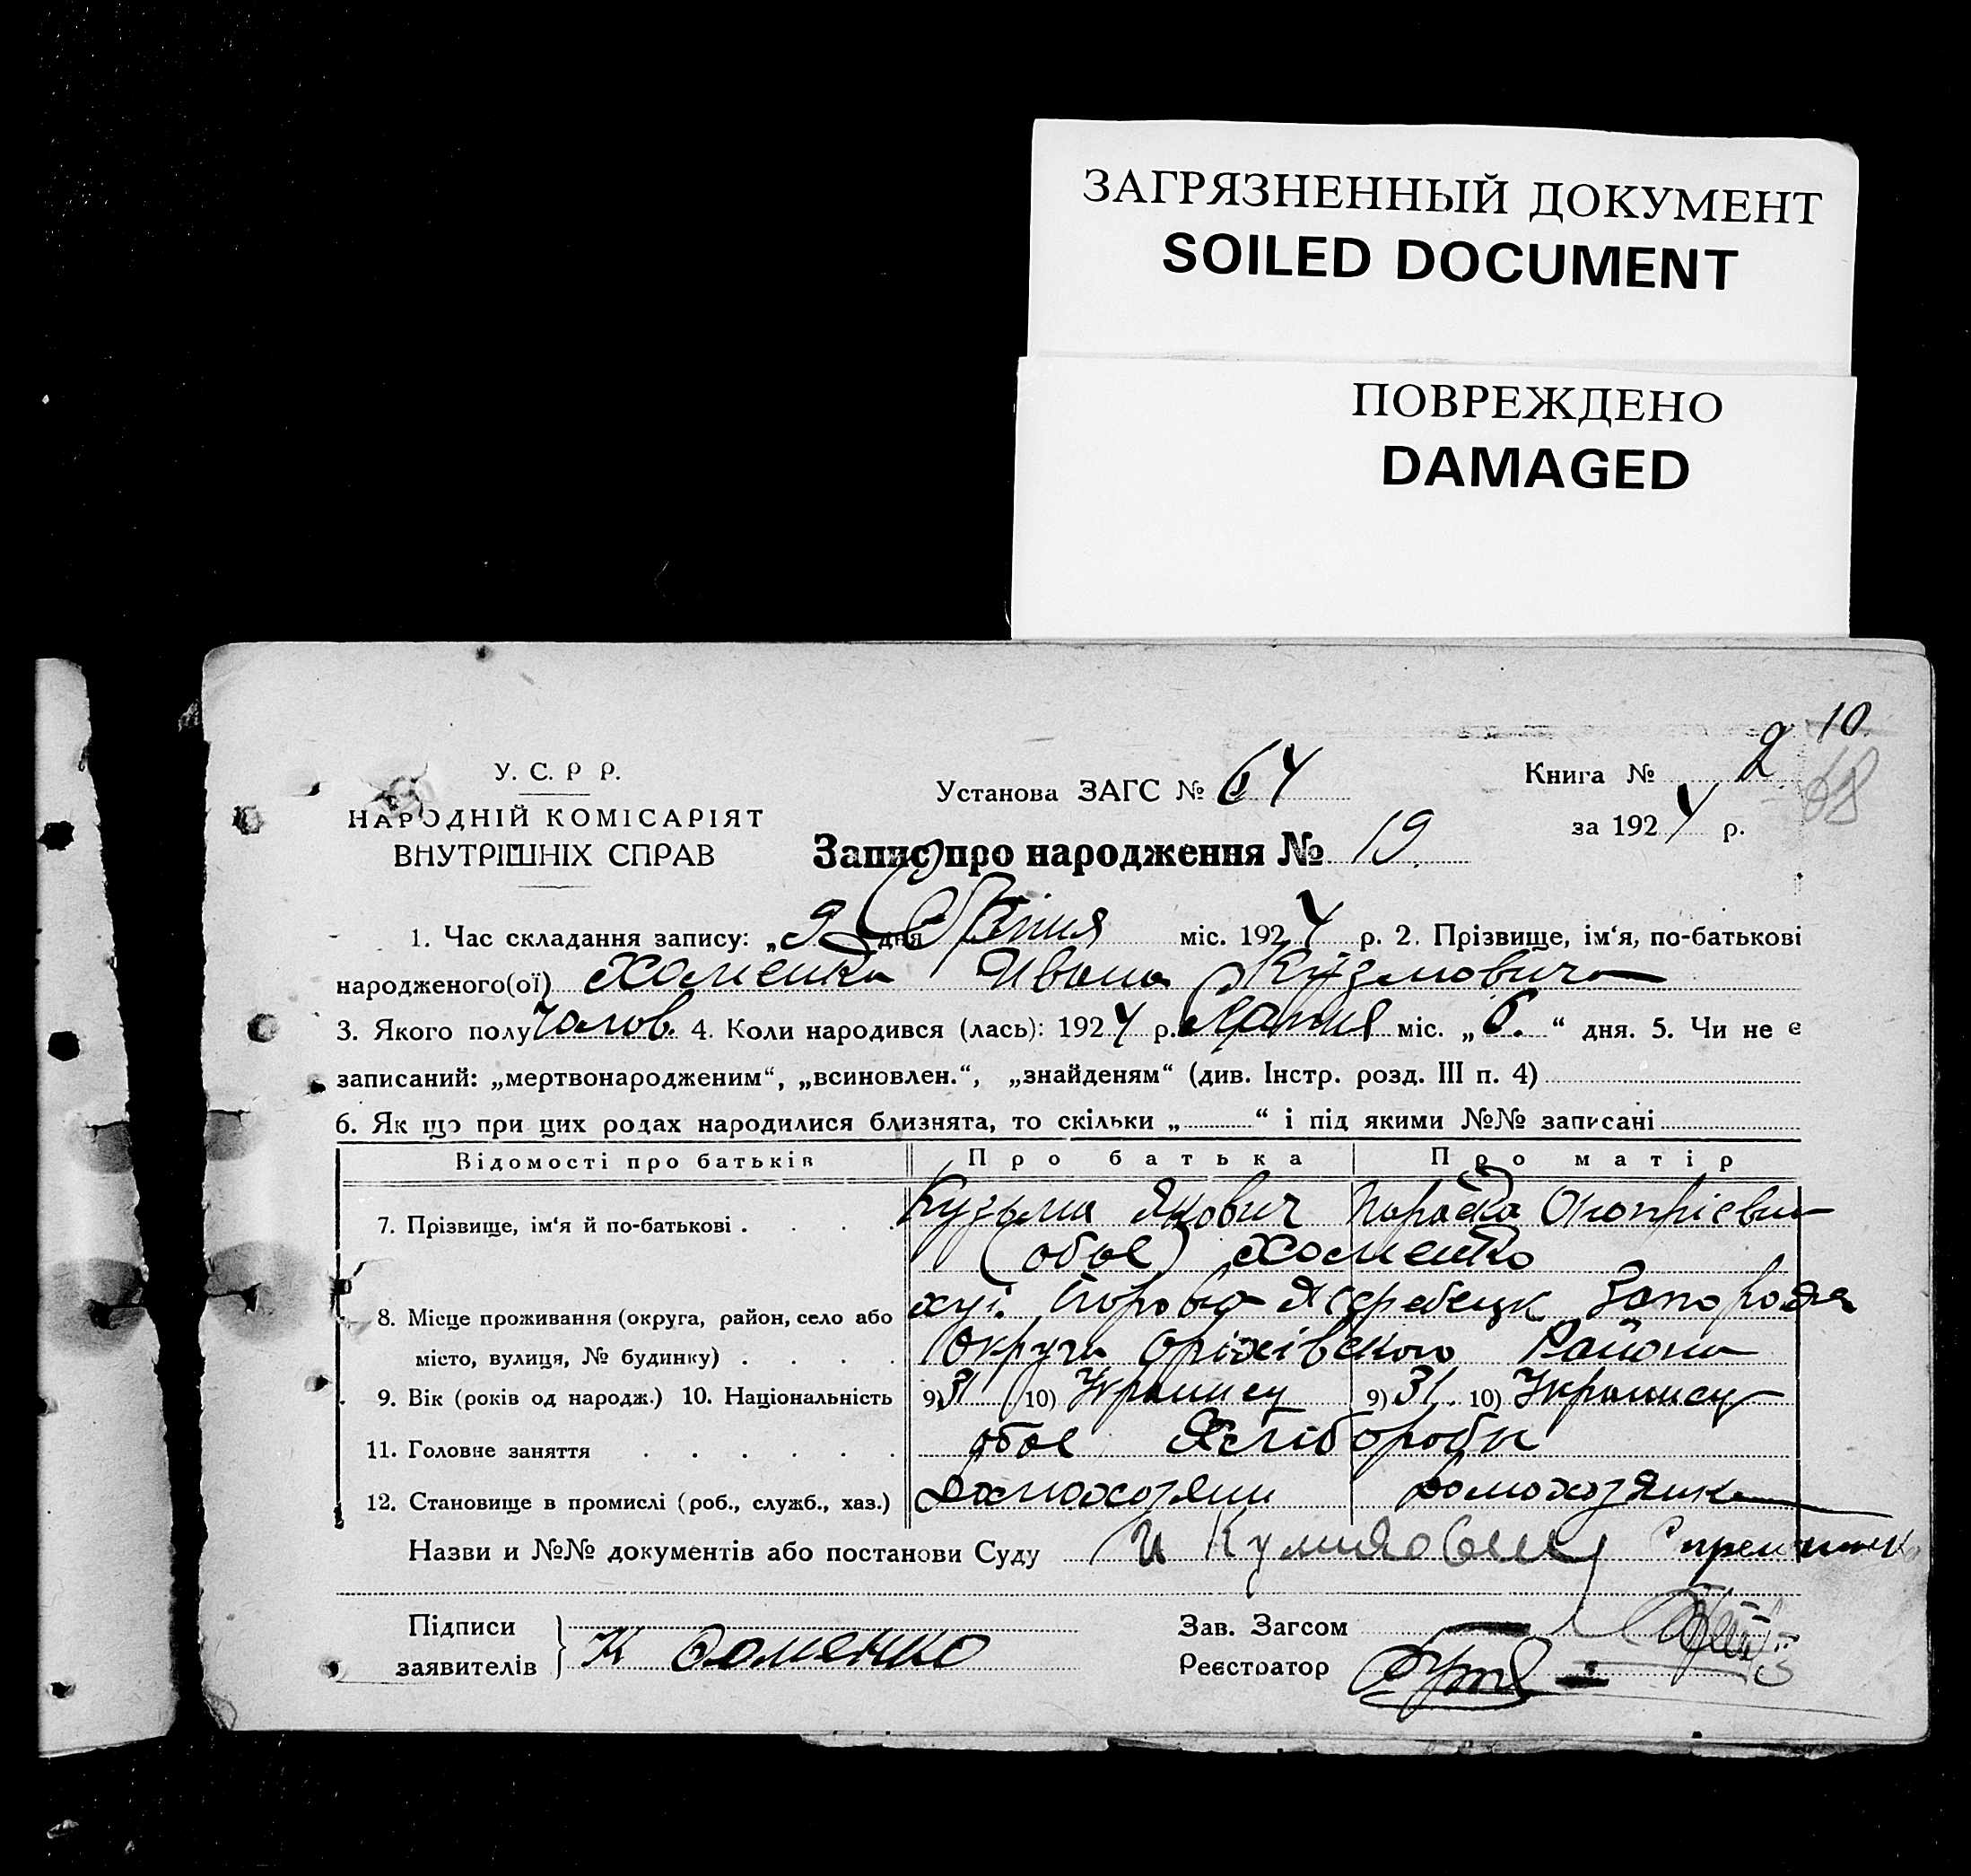 ЗАГРЯЗНЕННЫЙ ДОКУМЕНТ
SOILED DOCUMENT
ПОВРЕЖДЕНО
DAMAGED
10
68
У. С. Р Р.
НАРОДНІЙ КОМІСАРІЯТ
ВНУТРІШНІХ СПРАВ
Установа ЗАГС № 64
Книга № 2
за 1924 р.
Запис про народження № 19.
1. Час складання запису: „9 дня міс. 1924 р. 2. Прізвище, ім‘я, по-батькові
народженого(ої) Хоменка Ивана Кузмовича
3. Якого полу чолов. 4. Коли народився (лась): 1924 р. міс. „6.“ дня. 5. Чи не є
записаний: „мертвонародженим“, „всиновлен.“, „знайденям“ (див. Інстр. розд. III п. 4)
6. Як що при цих родах народилися близнята, то скільки „ “ і під якими №№ записані
Відомості про батьків Про батька Про матір
7. Прізвище, ім‘я й по-батькові Кузьма Якович Параска
(обое) Хоменко
8. Місце проживання (округа, район, село або хут. Жеребецк
місто, вулиця, № будинку) Округи Оріхівского Району
9. Вік (років од народж.) 10. Національність 9) 31 10) Украинец 9) 31. 10) Украинец
11. Головне заняття обое Хліборобы
12. Становище в промислі (роб., служб., хаз.) домохозяин домохозяйка
Назви и №№ документів або постанови Суду
Підписи
заявителів К Хоменко
Зав. Загсом
Реєстратор